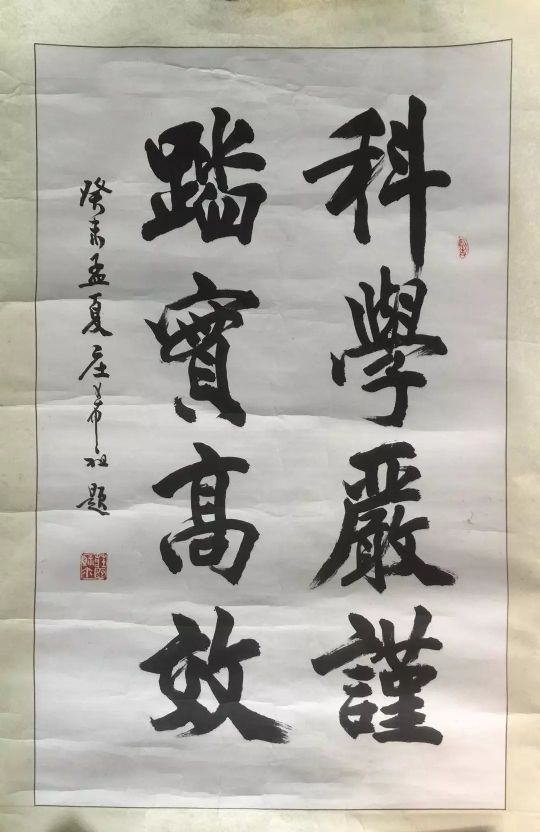 科學嚴謹
踏實高效
癸未孟夏莊希祖題